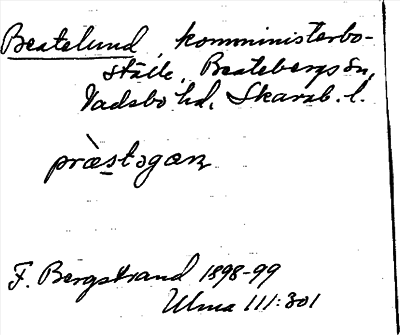 Beatelund, komministerbo-
ställe, Beatebergs sn,
Vadsbo hd, Skarab. l.
prὰstəgaɳ
F. Bergstrand 1898-99
Ulma 111:301